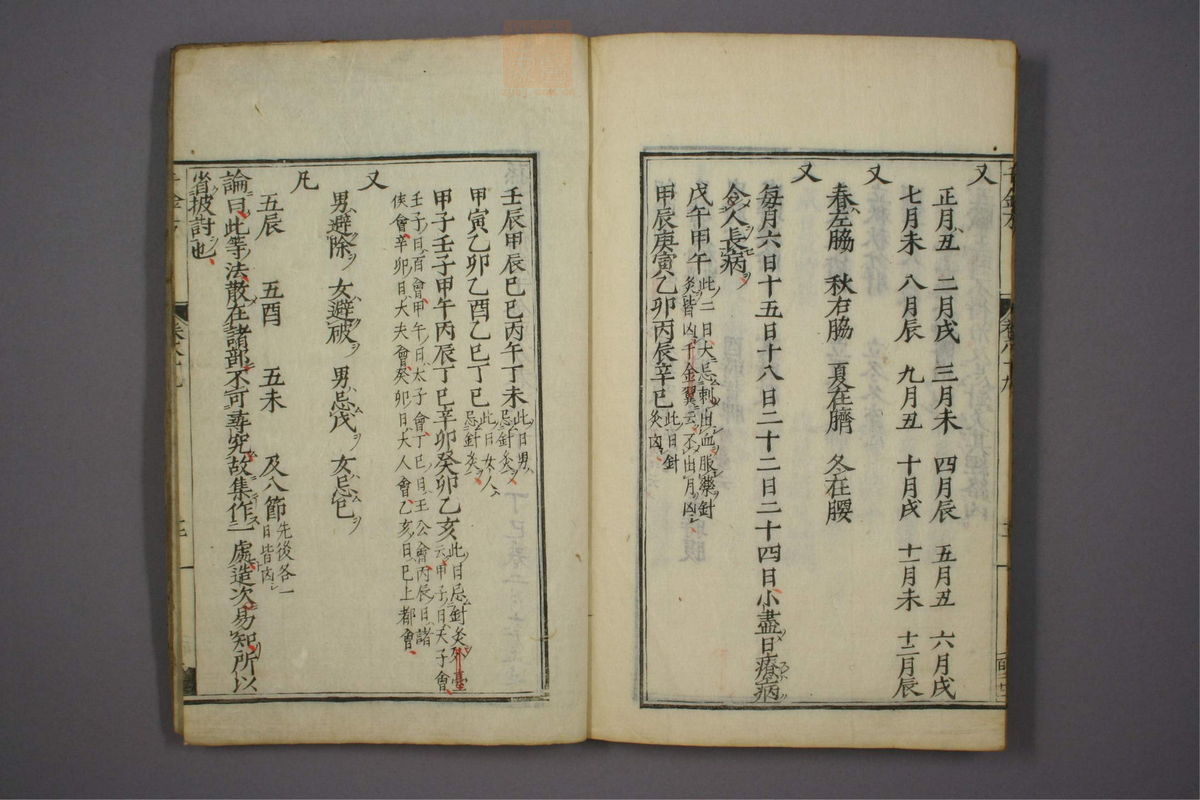 又
正月丑 二月戌 三月未 四月辰 五月丑 六月戌
七月未 八月辰 九月丑 十月戌 十一月未 十二月辰
又
春左脇 秋右脇 夏在臍 冬在腰
又
每月六日十五日十八日二十二日二十四日小盡日療病
令人長病
戊午甲午此二日大忌刺出血服藥針
灸皆凶千金翼云不出月凶
甲辰庚寅乙卯丙辰辛巳此日針
灸凶
壬辰甲辰巳巳丙午丁未此日男
忌針灸
甲寅乙卯乙酉乙巳丁巳此日女人
忌針灸
甲子壬子甲午丙辰丁巳辛卯癸卯乙亥此日忌針灸外臺
云甲子日天子會
壬子日百會甲午日太子會丁巳日王公會丙辰日諸
侯會辛卯日大夫會癸卯日大人會乙亥日巳上都會
又
男避除 女避破 男忌戊 女忌巳
凡
五辰 五酉 五未 及八節先後各一
日皆凶
論曰此等法散在諸部不可尋究故集作一處造次易知所以
省披討也